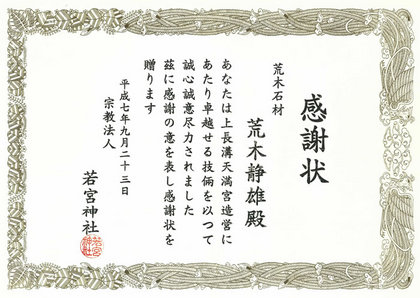 感謝状
荒木石材
荒木静雄殿
あなたは上長溝天満宮造営に
あたり卓越せる技倆を以つて
誠心誠意尽力されました
茲に感謝の意を表し感謝状を
贈ります
平成七年九月二十三日
宗教法人
若宮神社